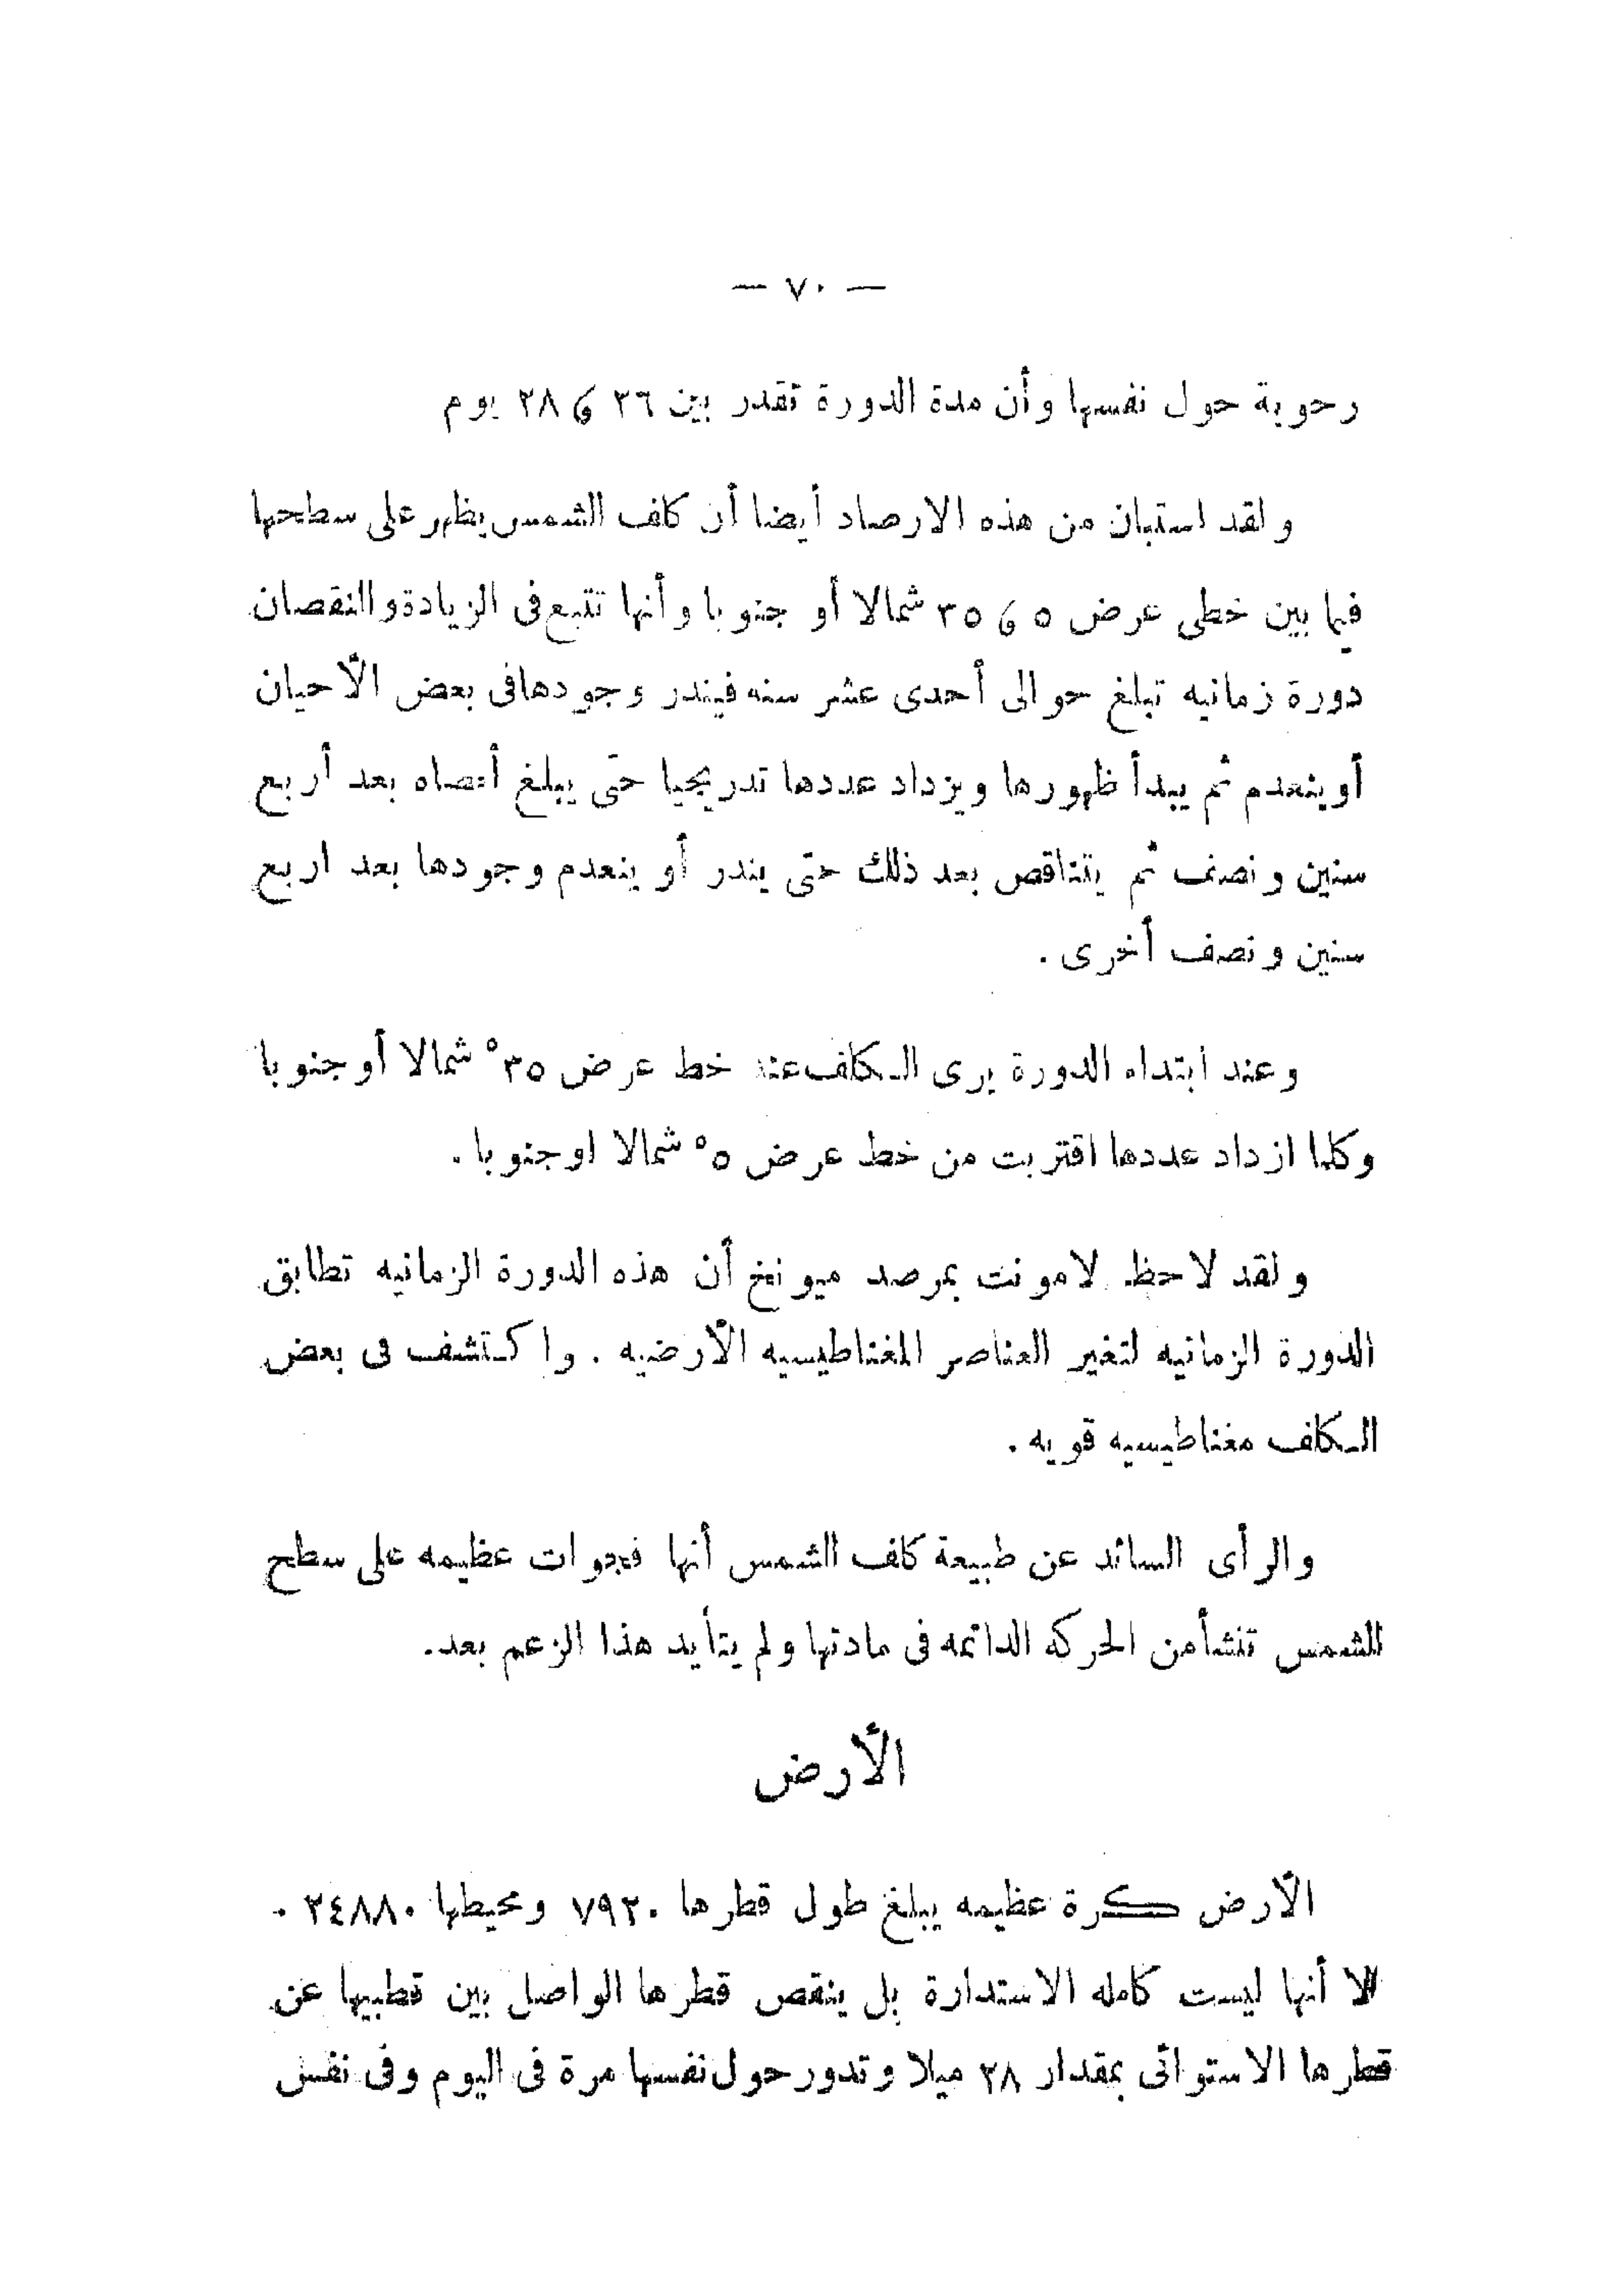 — ٧٠ —
رحوية حول نفسها وأن مدة الدورة تقدر بين ٢٦ و ٢٨ يوم
ولقد استبان من هذه الارصاد أيضا أن كلف الشمس يظهر على سطحها
فيما بين خطى عرض ٥ و ٣٥ شمالا أو جنوبا وأنها تتبع فى الزيادة والنقصان
دورة زمانيه تبلغ حوالى أحدى عشر سنه فيندر وجودها فى بعض الأحيان
أو ينعدم ثم يبدأ ظهورها ويزداد عددها تدريجيا حتى يبلغ أقصاه بعد أربع
سنين ونصف ثم يتناقص بعد ذلك حتى يندر أو ينعدم وجودها بعد اربع
سنين ونصف أخرى .
وعند ابتداء الدورة يرى الكلف عند خط عرض ٣٥° شمالا أو جنوبا
وكلما ازداد عددها اقتربت من خط عرض ٥° شمالا او جنوبا .
ولقد لاحظ لامونت بمرصد ميونخ أن هذه الدورة الزمانيه تطابق
الدورة الزمانيه لتغير العناصر المغناطيسيه الأرضيه . واكتشف فى بعض
الكلف مغناطيسيه قويه .
والرأى السائد عن طبيعة كلف الشمس أنها فجوات عظيمه على سطح
الشمس تنشأ من الحركه الدائمه فى مادتها ولم يتأيد هذا الزعم بعد .
الأرض
الأرض كرة عظيمه يبلغ طول قطرها ٧٩٢٠ ومحيطها ٢٤٨٨٠ .
الا أنها ليست كامله الاستدارة بل ينقص قطرها الواصل بين قطبيها عن
قطرها الاستوائى بمقدار ٢٨ ميلا وتدور حول نفسها مرة فى اليوم وفى نفس